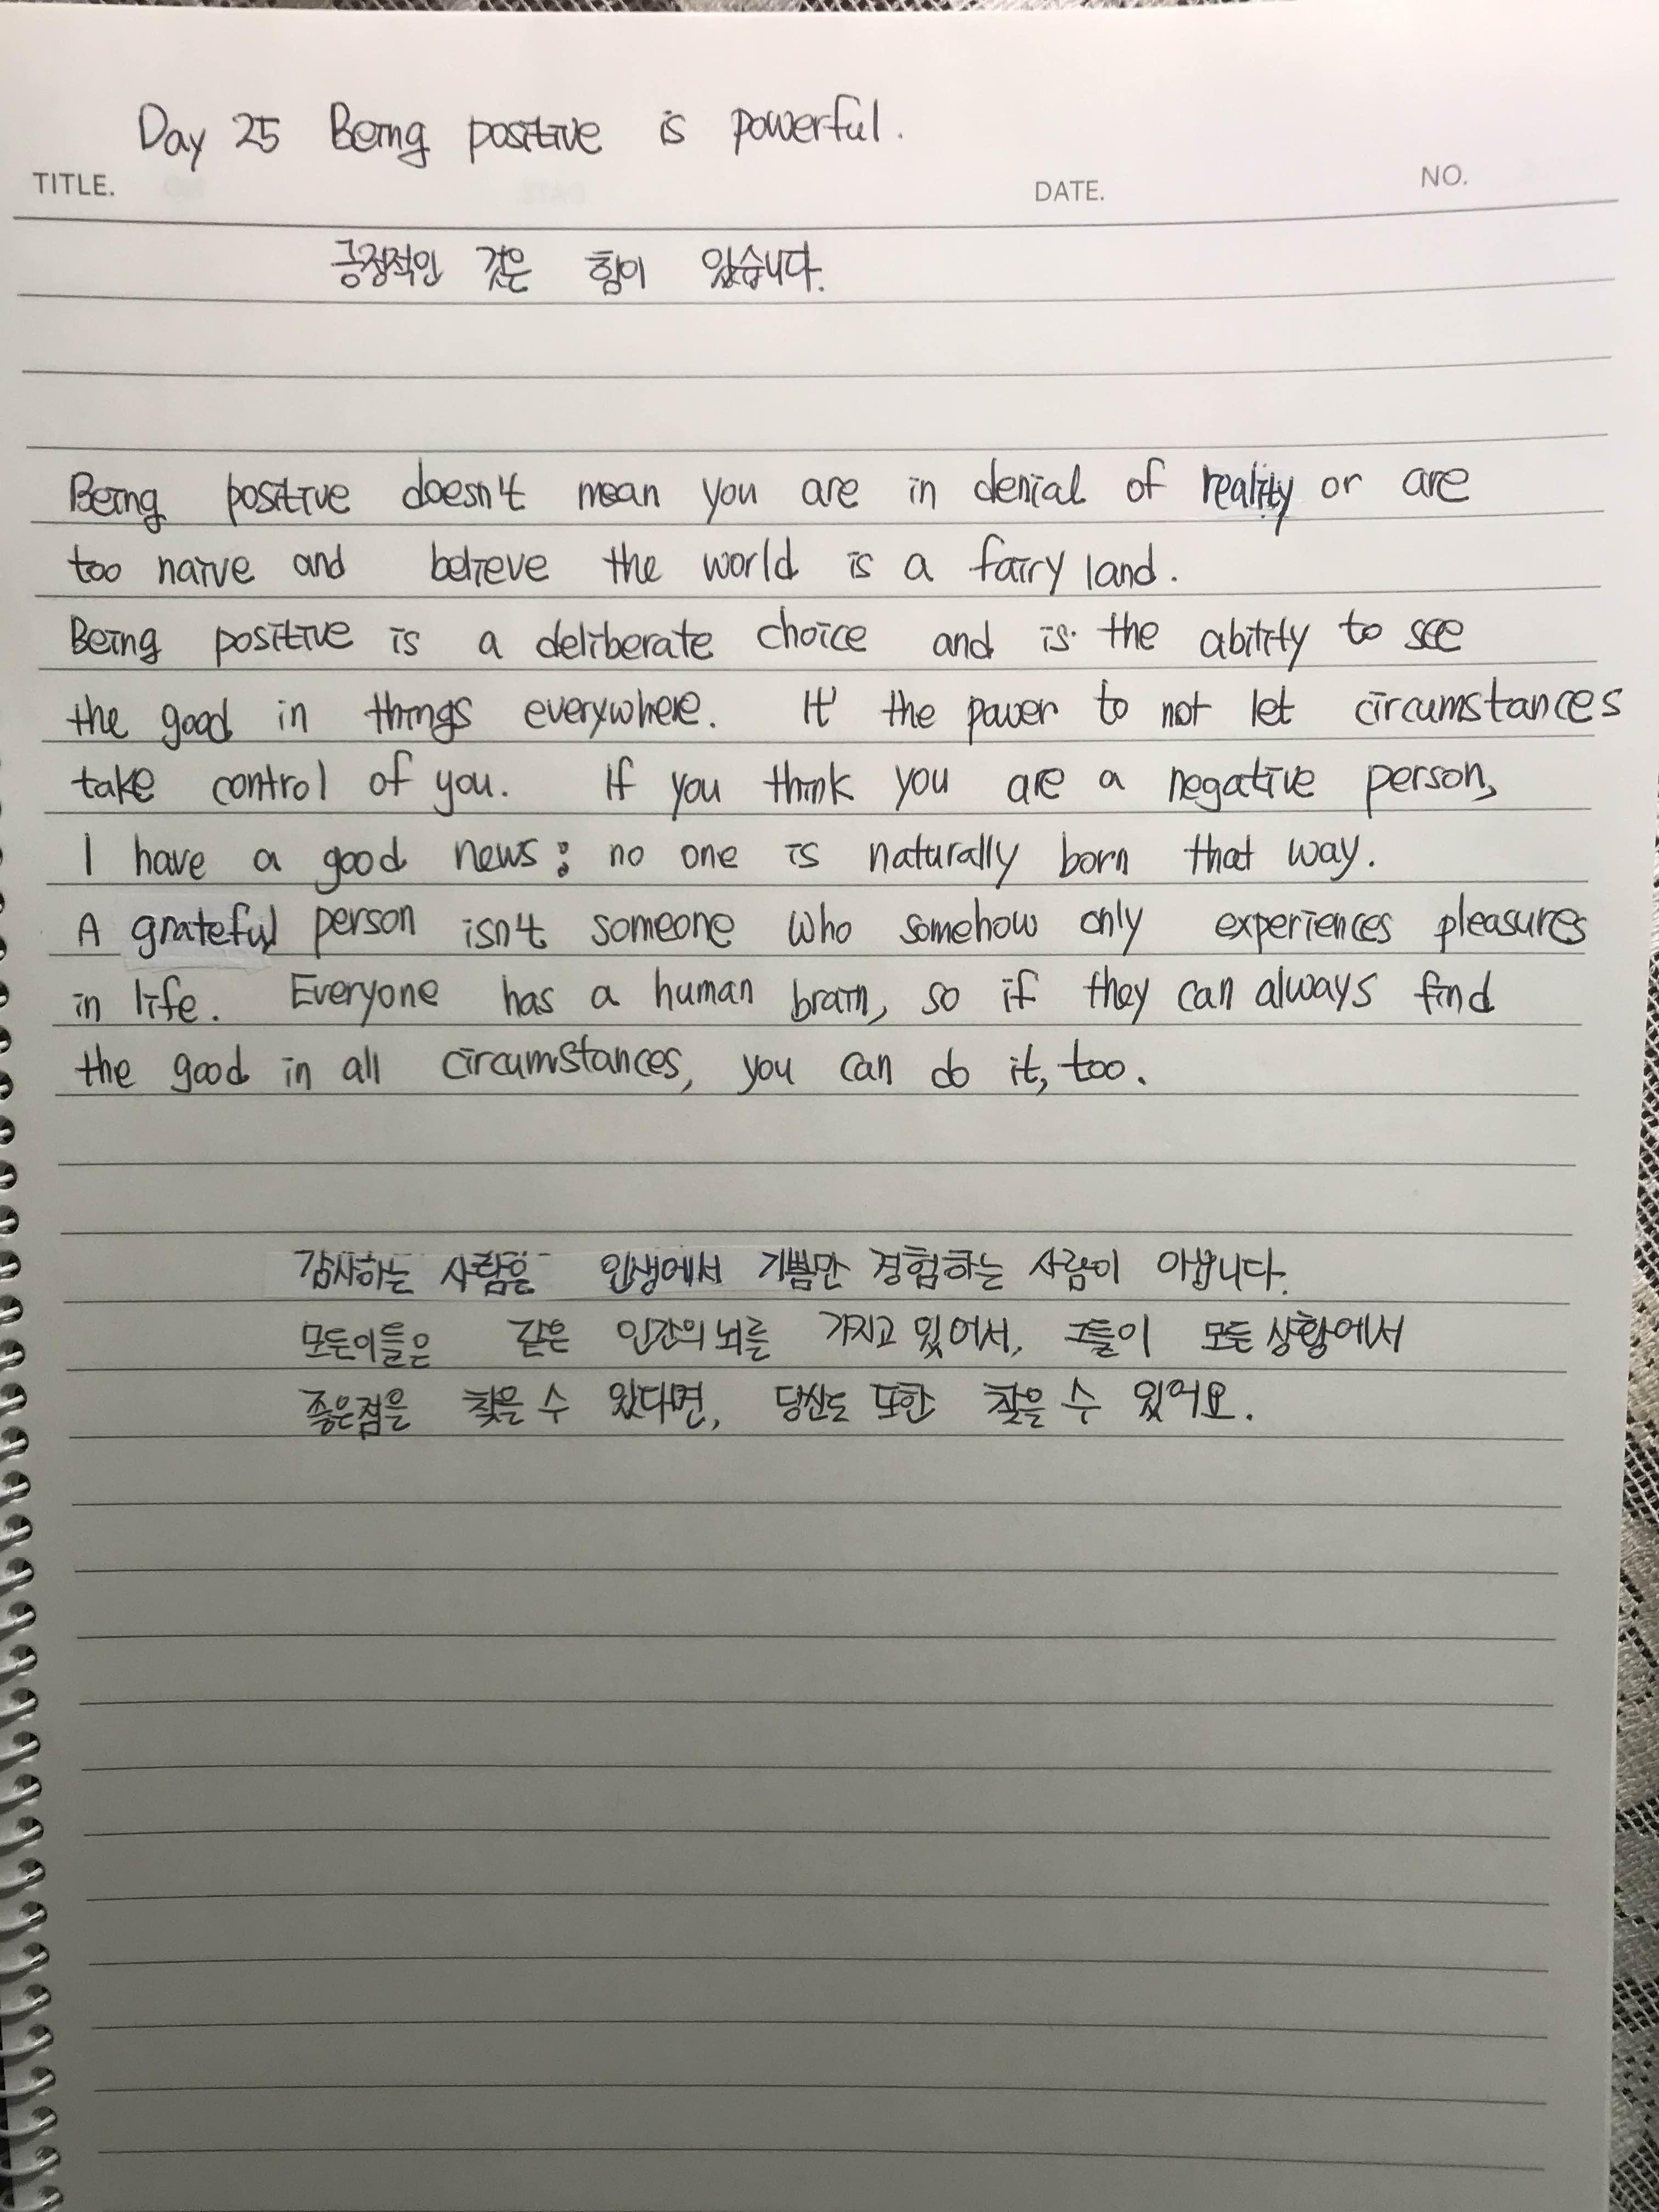 Day 25 Being positive is powerful.
TITLE. DATE. NO.
긍정적인 것은 힘이 있습니다.
Being positive doesn't mean you are in denial of reality or are
too naive and believe the world is a fairy land.
Being positive is a deliberate choice and is the ability to see
the good in things everywhere. It' the power to not let circumstances
take control of you. If you think you are a negative person,
I have a good news: no one is naturally born that way.
A grateful person isn't someone who somehow only experiences pleasures
in life. Everyone has a human brain, so if they can always find
the good in all circumstances, you can do it, too.
감사하는 사람은 인생에서 기쁨만 경험하는 사람이 아닙니다.
모든이들은 같은 인간의 뇌를 가지고 있어서, 그들이 모든 상황에서
좋은점을 찾을 수 있다면, 당신도 또한 찾을 수 있어요.